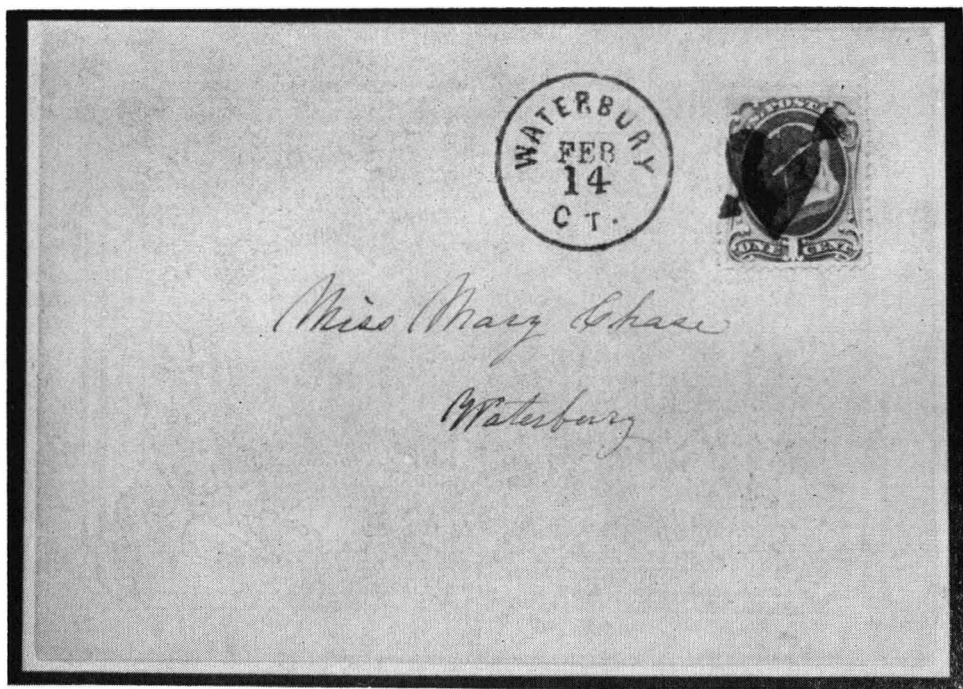 WATERBURY
FEB
14
CT.
Miss Mary Chase
Waterbury